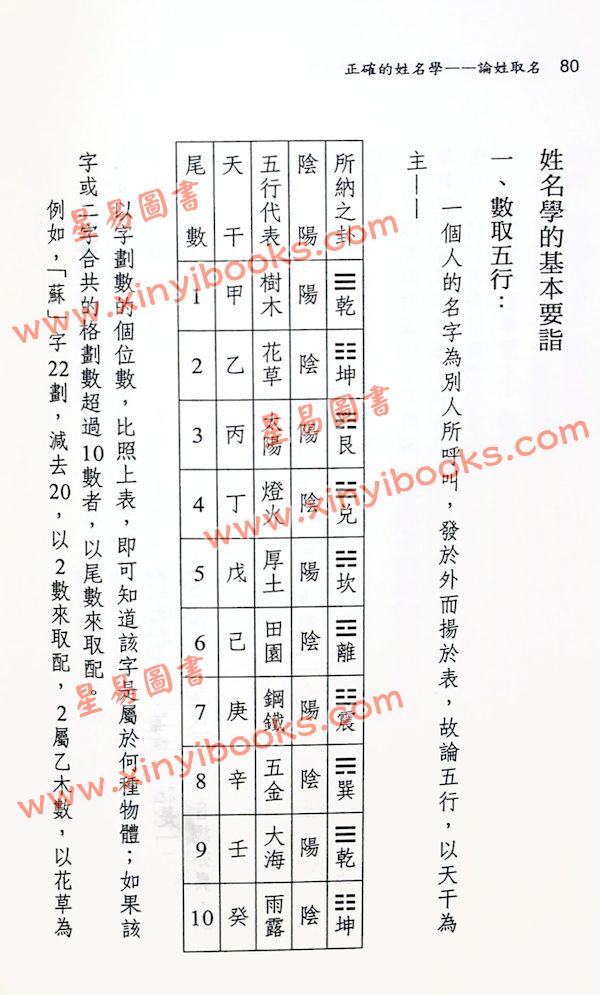 正確的姓名學——論姓取名 80
姓名學的基本要詣
一、數取五行：
一個人的名字為別人所呼叫，發於外而揚於表，故論五行，以天干為
主——
所納之卦 ☰乾 ☷坤 ☶艮 ☱兌 ☵坎 ☲離 ☳震 ☴巽 ☰乾 ☷坤
陰陽 陽 陰 陽 陰 陽 陰 陽 陰 陽 陰
五行代表 樹木 花草 太陽 燈火 厚土 田園 鋼鐵 五金 大海 雨露
天干 甲 乙 丙 丁 戊 己 庚 辛 壬 癸
尾數 1 2 3 4 5 6 7 8 9 10
以字劃數的個位數，比照上表，即可知道該字是屬於何種物體；如果該
字或二字合共的格劃數超過10數者，以尾數來取配。
例如，「蘇」字22劃，減去20，以2數來取配，2屬乙木數，以花草為
星易圖書
www.xinyibooks.com
星易圖書
www.xinyibooks.com
星易圖書
www.xinyibooks.com